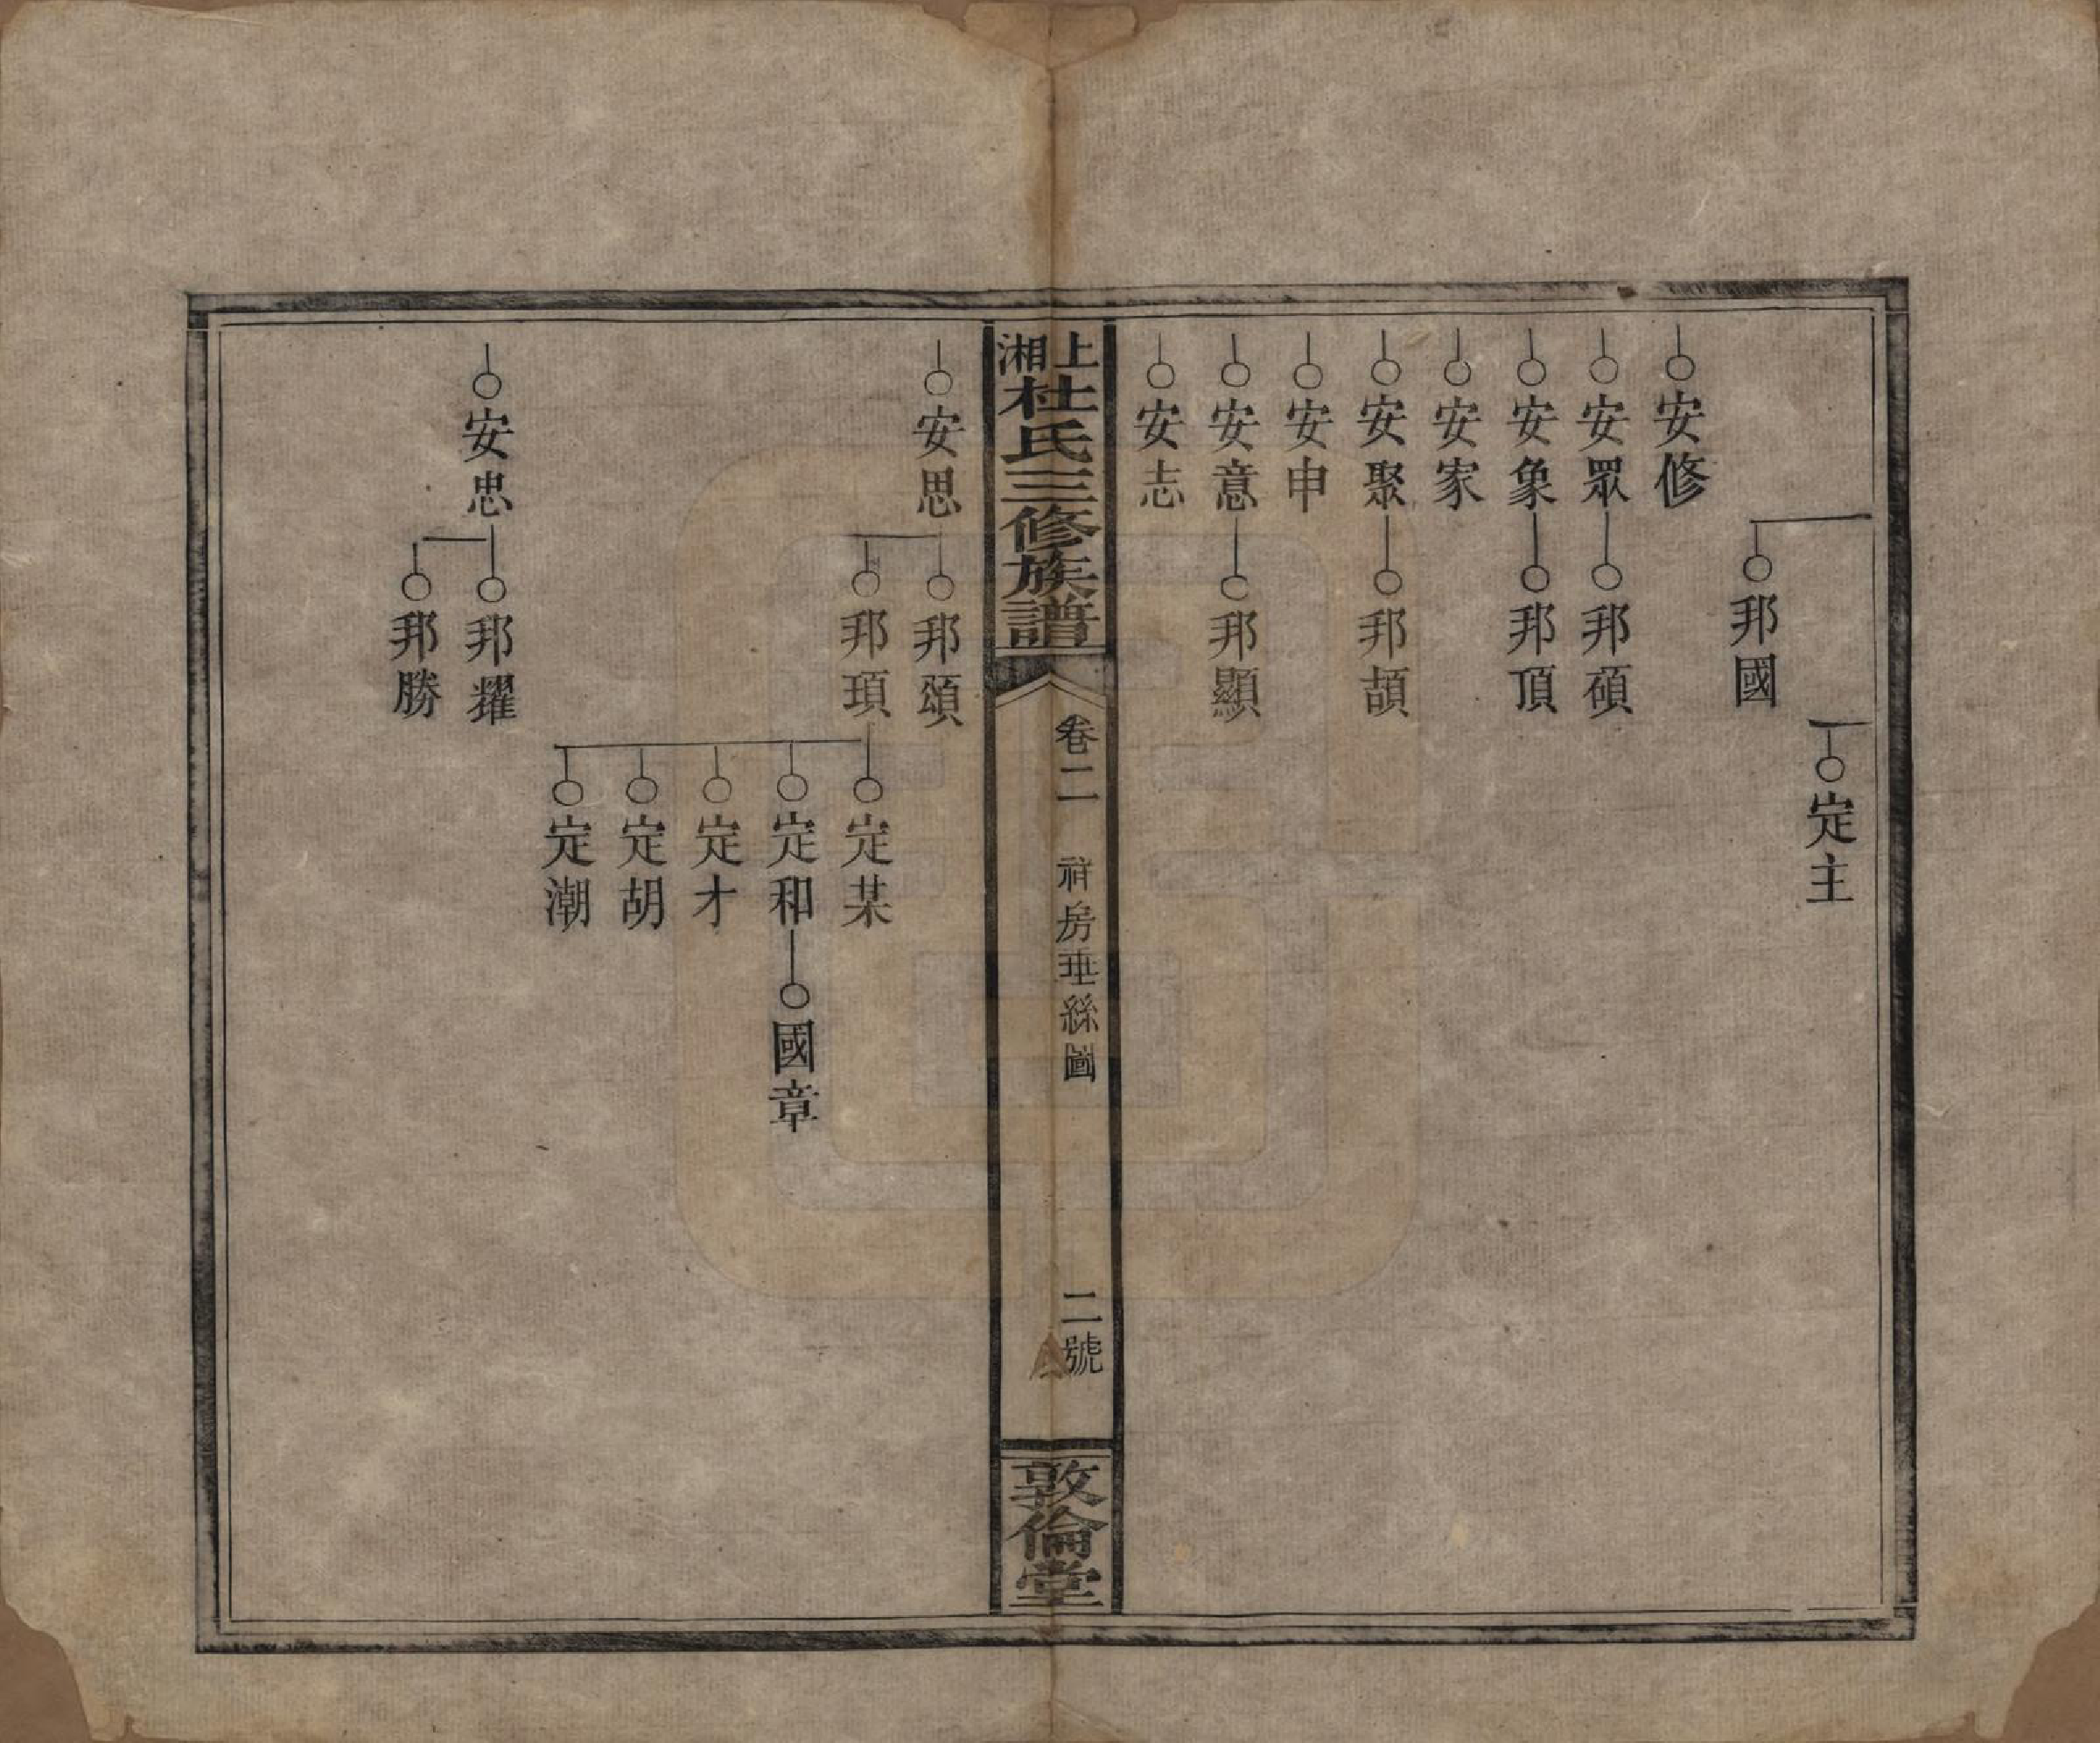 定主
邦國
安修
安眾 邦碩
安象 邦頂
安家
安聚 邦頡
安申
安意 邦顯
安志
上湘杜氏三修族譜
卷二 祥房垂絲圖 二號
敦倫堂
安思 邦頌
邦頊 定某
定和 國章
定才
定胡
定潮
安忠 邦耀
邦勝